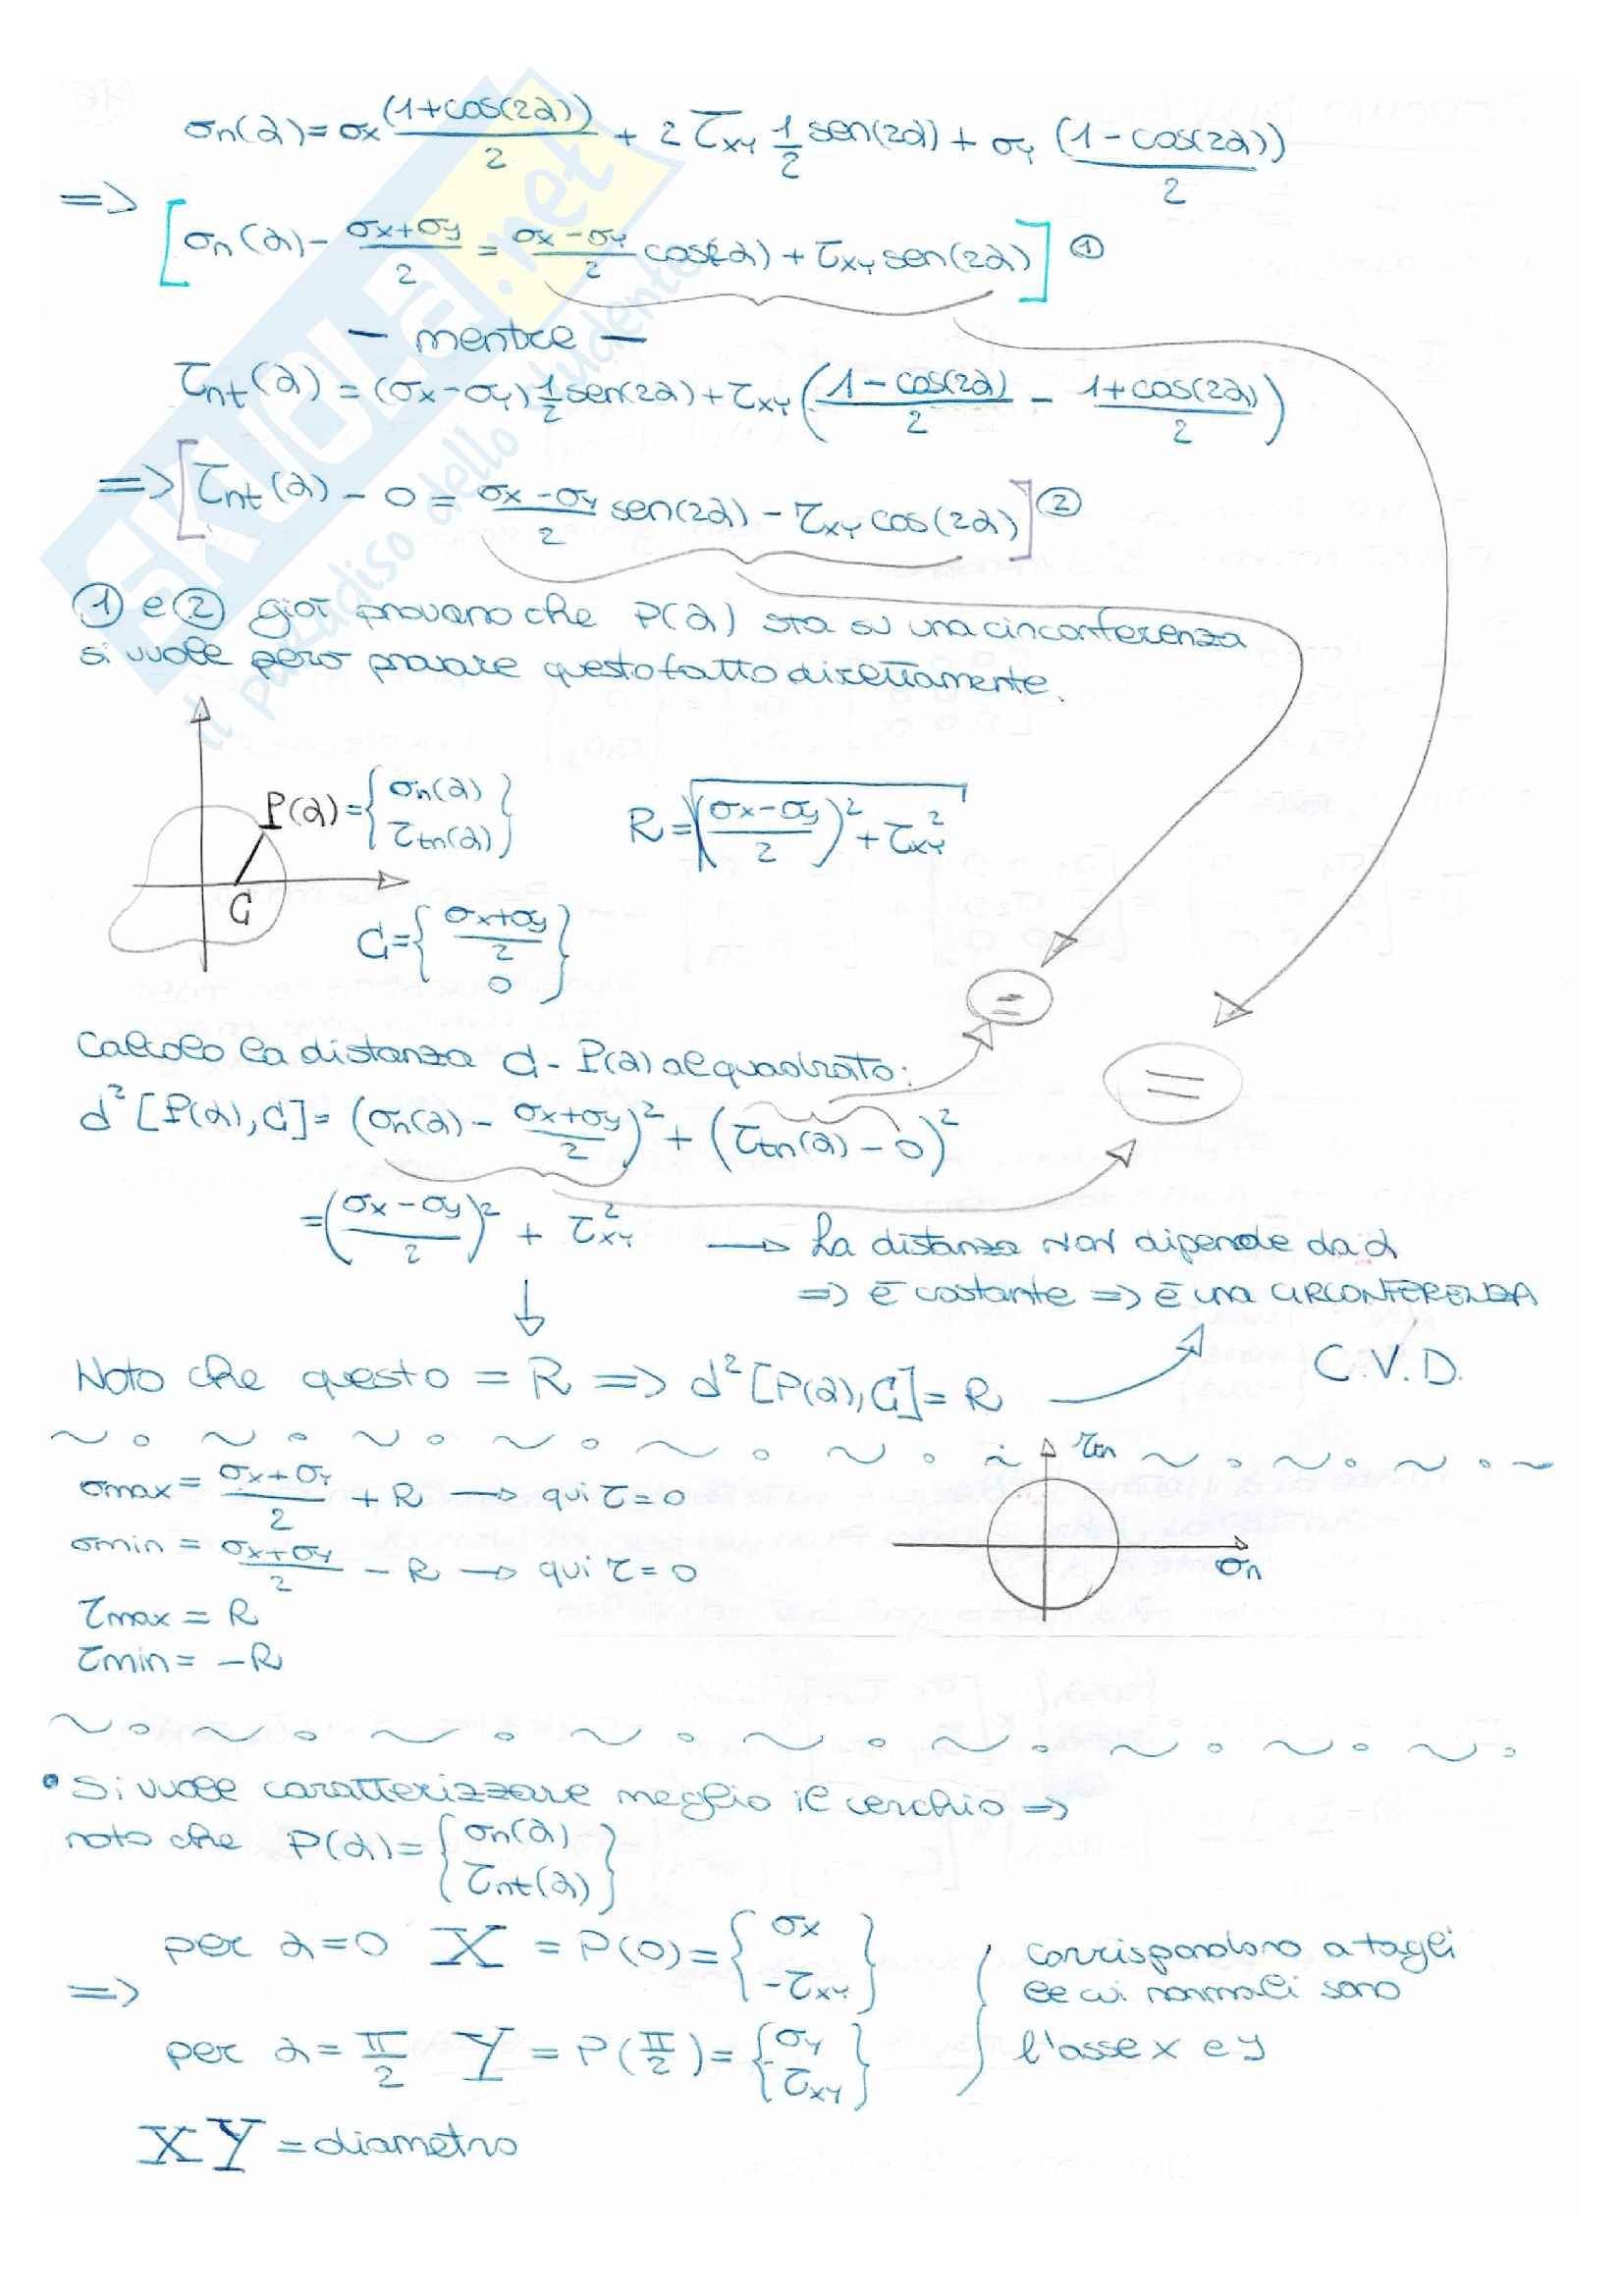 σn(α) = σx (1+cos(2α))/2 + 2 τxy 1/2 sen(2α) + σy (1-cos(2α))/2
=> [σn(α) - (σx+σy)/2 = (σx-σy)/2 cos(2α) + τxy sen(2α)] ①
- mentre -
τnt(α) = (σx-σy) 1/2 sen(2α) + τxy ((1-cos(2α))/2 - (1+cos(2α))/2)
=> [τnt(α) - 0 = (σx-σy)/2 sen(2α) - τxy cos(2α)] ②
① e ② già provano che P(α) sta su una circonferenza
si vuole però provare questo fatto direttamente.
P(α) = {σn(α) τtn(α)}
R = √(((σx-σy)/2)² + τxy²)
C
C = {(σx+σy)/2 0}
=
=
Calcolo la distanza C - P(α) al quadrato:
d² [P(α), C] = (σn(α) - (σx+σy)/2)² + (τtn(α) - 0)²
= ((σx-σy)/2)² + τxy² → La distanza NON dipende da α
=> è costante => è una CIRCONFERENZA
Noto che questo = R => d² [P(α), C] = R
C.V.D.
τtn
σn
σmax = (σx+σy)/2 + R → qui τ=0
σmin = (σx+σy)/2 - R → qui τ=0
τmax = R
τmin = -R
• Si vuole caratterizzare meglio il cerchio =>
noto che P(α) = {σn(α) τnt(α)}
=> per α=0 X = P(0) = {σx -τxy}
per α = π/2 Y = P(π/2) = {σy τxy}
corrispondono a tagli
le cui normali sono
l'asse x e y
XY = diametro
SKUOLA.net
il paradiso dello studente